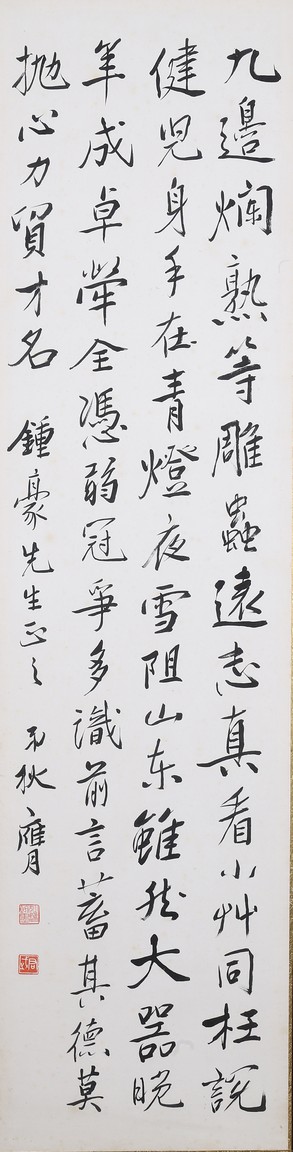 九邊爛熟等雕蟲遠志真看小艸同枉說
健児身手在青燈夜雪阻山东雖然大器晚
年成卓犖全憑弱冠爭多識前言蓄其德莫
抛心力貿才名 鍾豪先生正之 弟狄膺